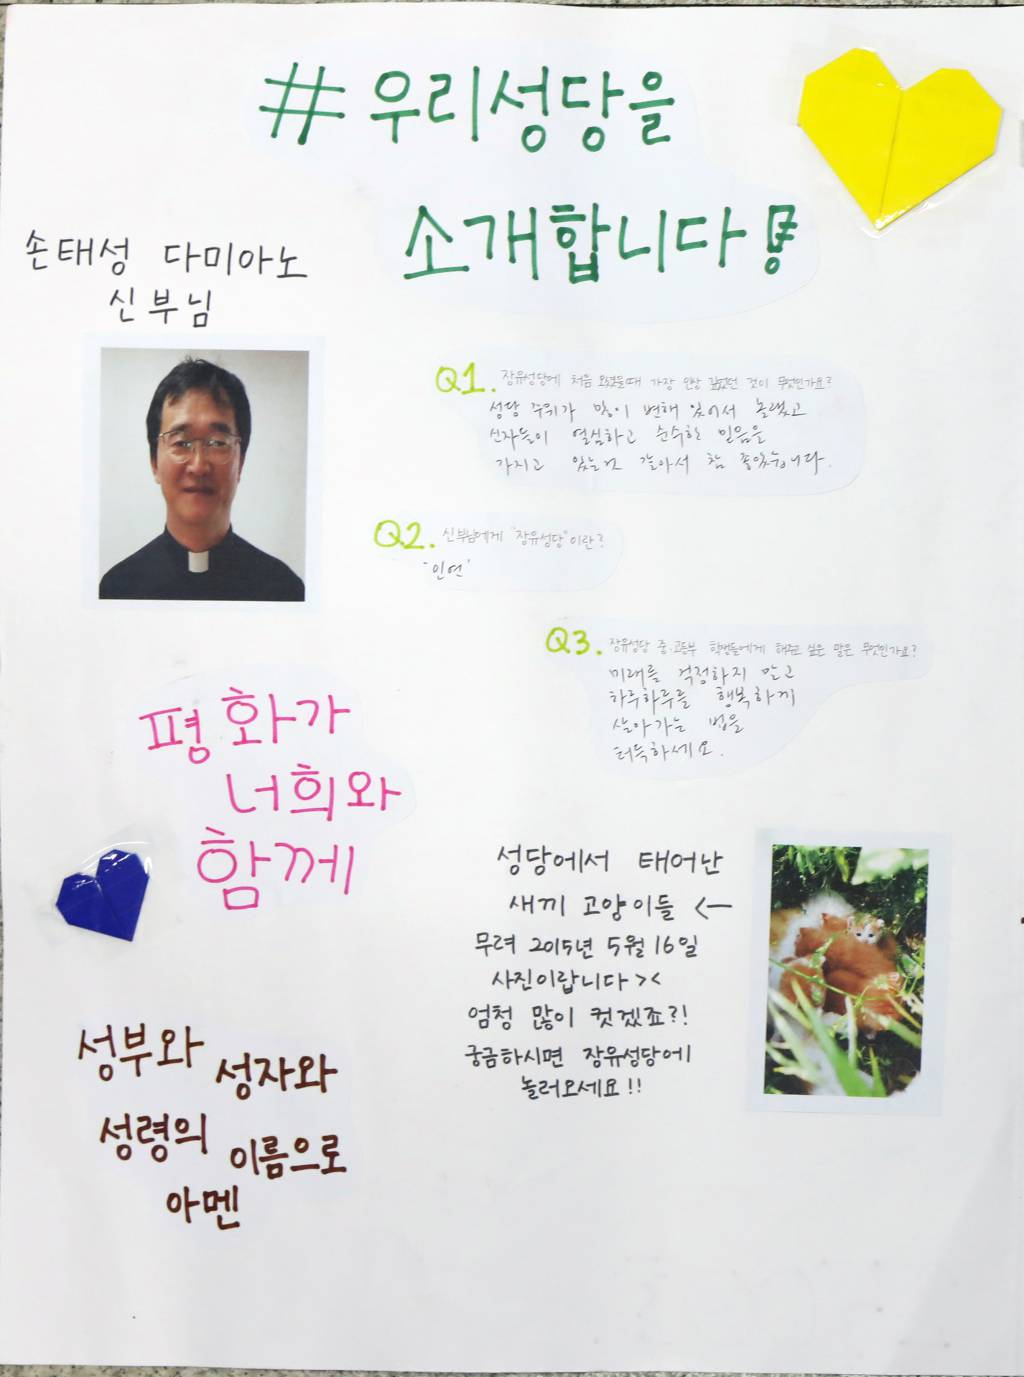 #우리성당을
소개합니다!
손태성 다미아노
신부님
Q1. 장유성당에 처음 오셨을때 가장 인상 깊었던 것이 무엇인가요?
성당 주위가 많이 변해 있어서 놀랬고
신자들이 열심하고 순수한 믿음을
가지고 있는것 같아서 참 좋았습니다.
Q2. 신부님에게 "장유성당"이란?
"인연"
Q3. 장유성당 중·고등부 학생들에게 해주고 싶은 말은 무엇인가요?
미래를 걱정하지 말고
하루하루를 행복하게
살아가는 법을
터득하세요.
평화가
너희와
함께
성당에서 태어난
새끼 고양이들 ←
무려 2015년 5월 16일
사진이랍니다><
엄청 많이 컷겠죠?!
궁금하시면 장유성당에
놀러오세요!!
성부와 성자와
성령의 이름으로
아멘